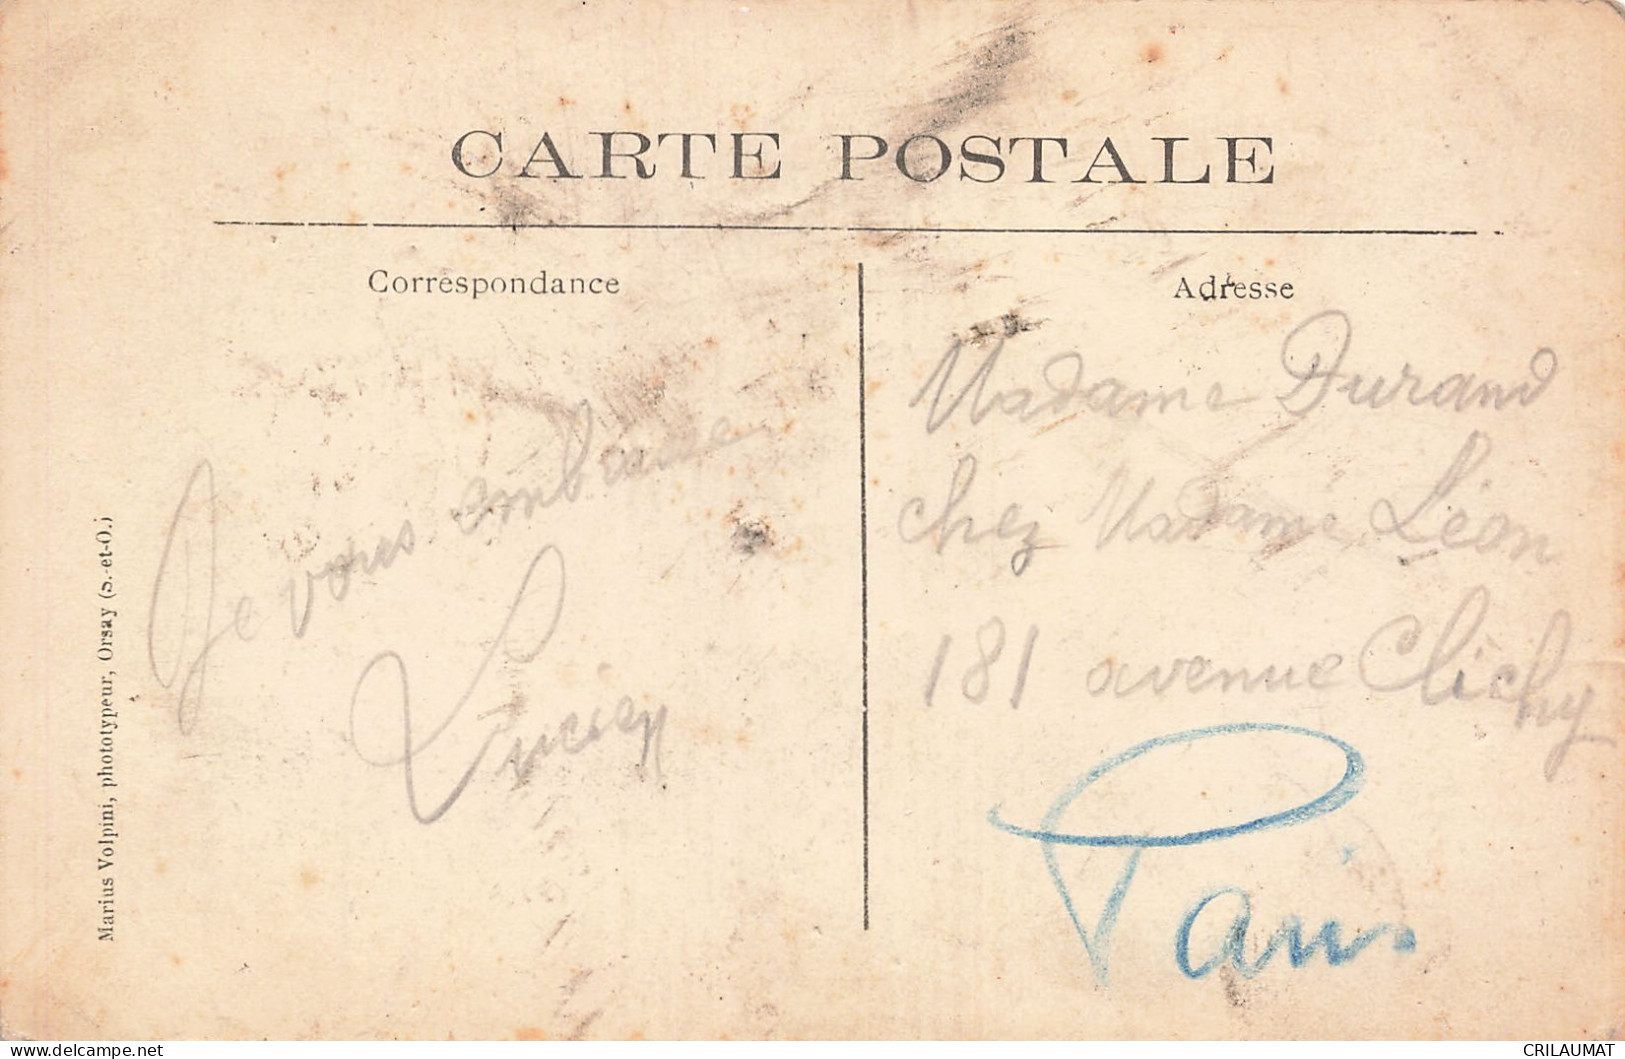 CARTE POSTALE
Correspondance
Adresse
Je vous embrasse
Lucien
Madame Durand
chez Madame Léon
181 avenue Clichy
Paris
Marius Volpini, phototypeur, Orsay (S.-et-O.)
CRILAUMAT